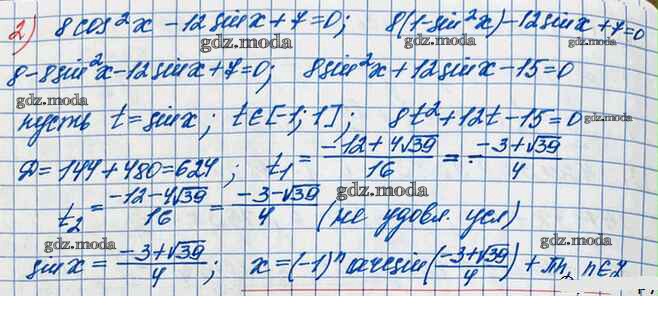 2) 8cos²x - 12sinx + 7 = 0; 8(1-sin²x) - 12sinx + 7 = 0
gdz.moda gdz.moda
8 - 8sin²x - 12sinx + 7 = 0; 8sin²x + 12sinx - 15 = 0
gdz.moda gdz.moda
пусть t = sinx; t∈[-1; 1]; 8t² + 12t - 15 = 0
gdz.moda
Д = 144 + 480 = 624; t₁ = (-12+4√39)/16 = (-3+√39)/4
gdz.moda
t₂ = (-12-4√39)/16 = (-3-√39)/4 (не удовл. усл)
gdz.moda
gdz.moda gdz.moda
sinx = (-3+√39)/4; x = (-1)ⁿ arcsin((-3+√39)/4) + πn, n∈Z
gdz.moda gdz.moda